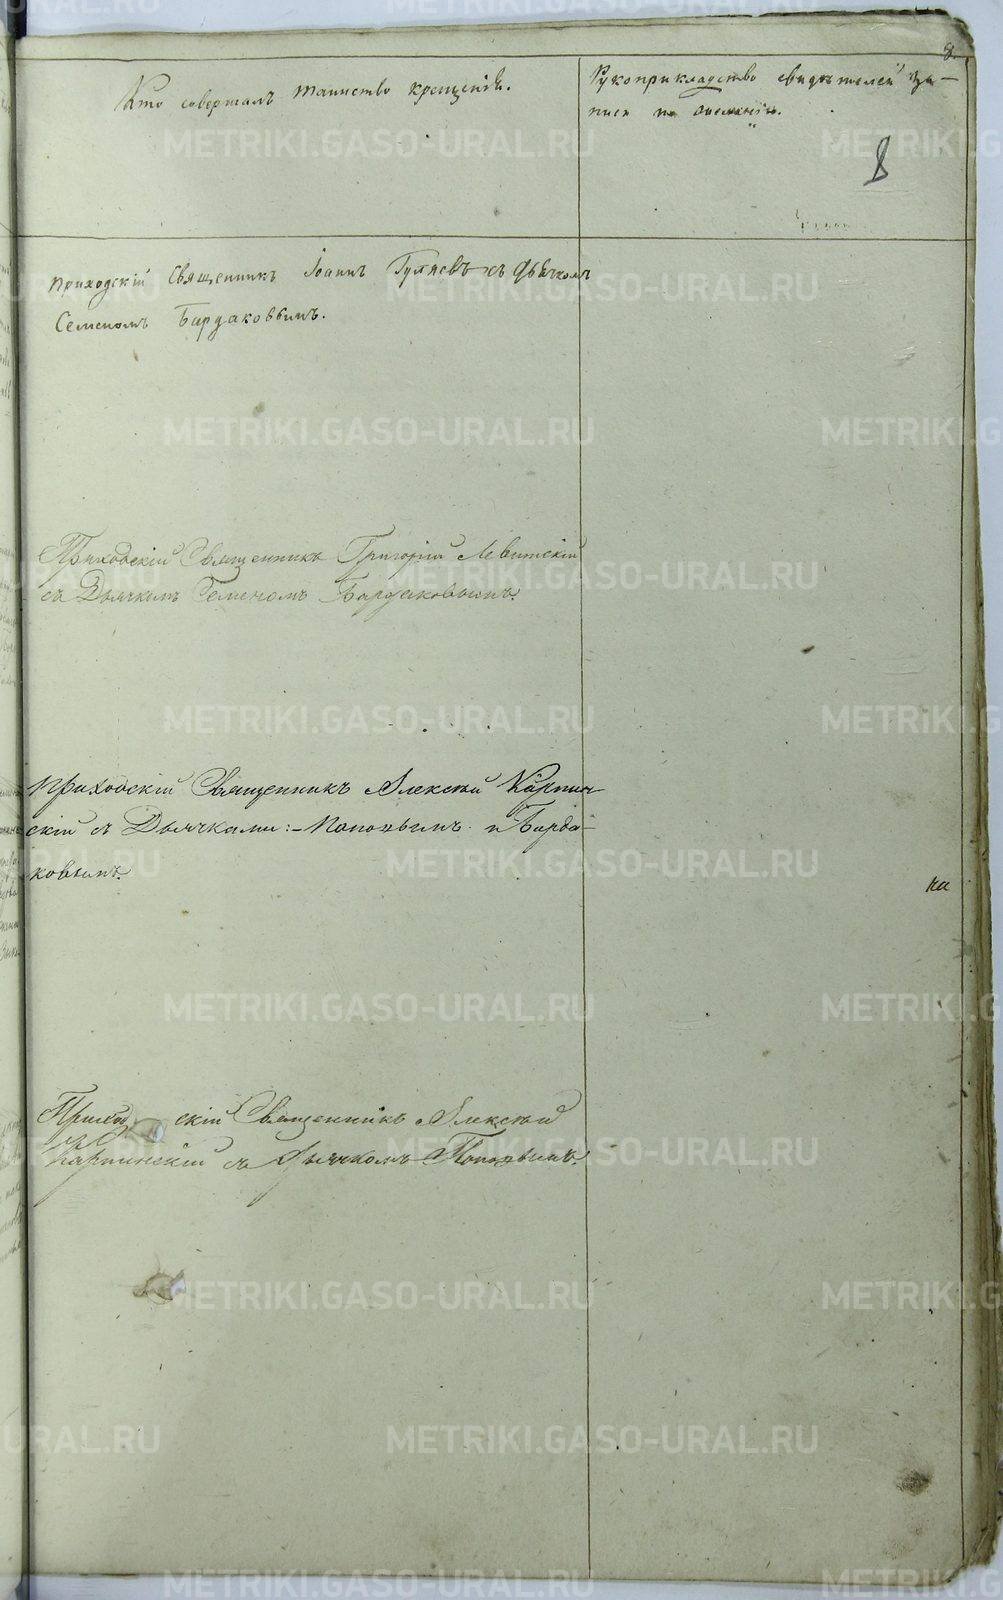 8.
Кто совершалъ таинство крещенія.
Рукоприкладство свидѣтелей за-
писи по
8
приходскій Священникъ Іоаннъ Гуляевъ съ дьячкомъ
Семеномъ Бардаковымъ.
Приходскій Священникъ Григорій Левитскій
съ Дьячкомъ Семеномъ Бардаковымъ.
приходскій Священникъ Алексѣй Карпин-
скій съ Дьячками:-Поповымъ и Барда-
ковымъ.
на
Приход скій Священникъ Алексѣй
Карпинскій съ Дьячкомъ Поповымъ.
METRIKI.GASO-URAL.RU